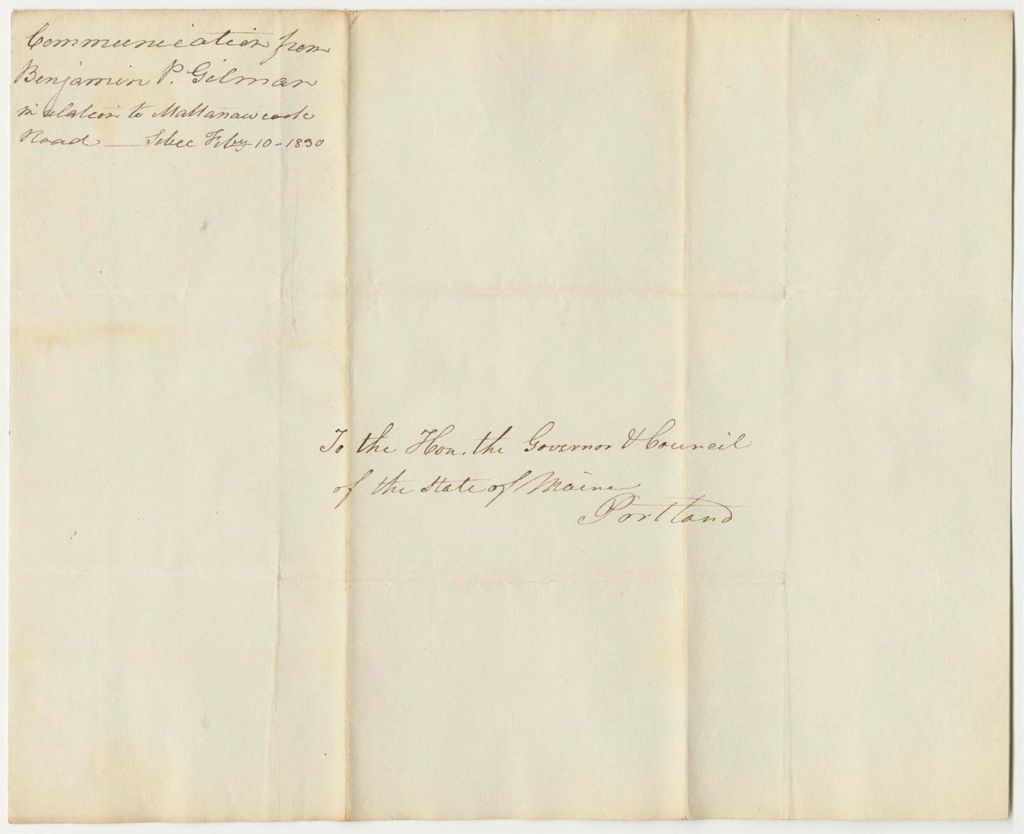 Communication from
Benjamin P. Gilman
in relation to Mattanawcook
Road — Sebec Feby 10 - 1830
To the Hon. the Governor & Council
of the State of Maine
Portland